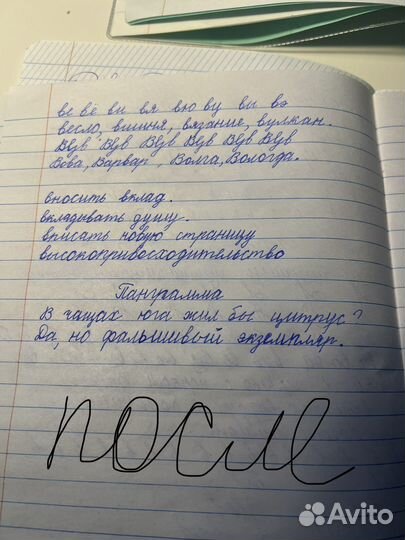 ве вё ви вя вю ву вы вэ
весло, вишня, вязание, вулкан.
ВуВ ВуВ ВуВ ВуВ ВуВ ВуВ
Вова, Варвар, Волга, Вологда.
вносить вклад.
вкладывать душу.
вписать новую страницу
высокопривосходительство
Панграмма
В чащах юга жил бы цитрус?
Да, но фальшивый экземпляр.
после
Avito